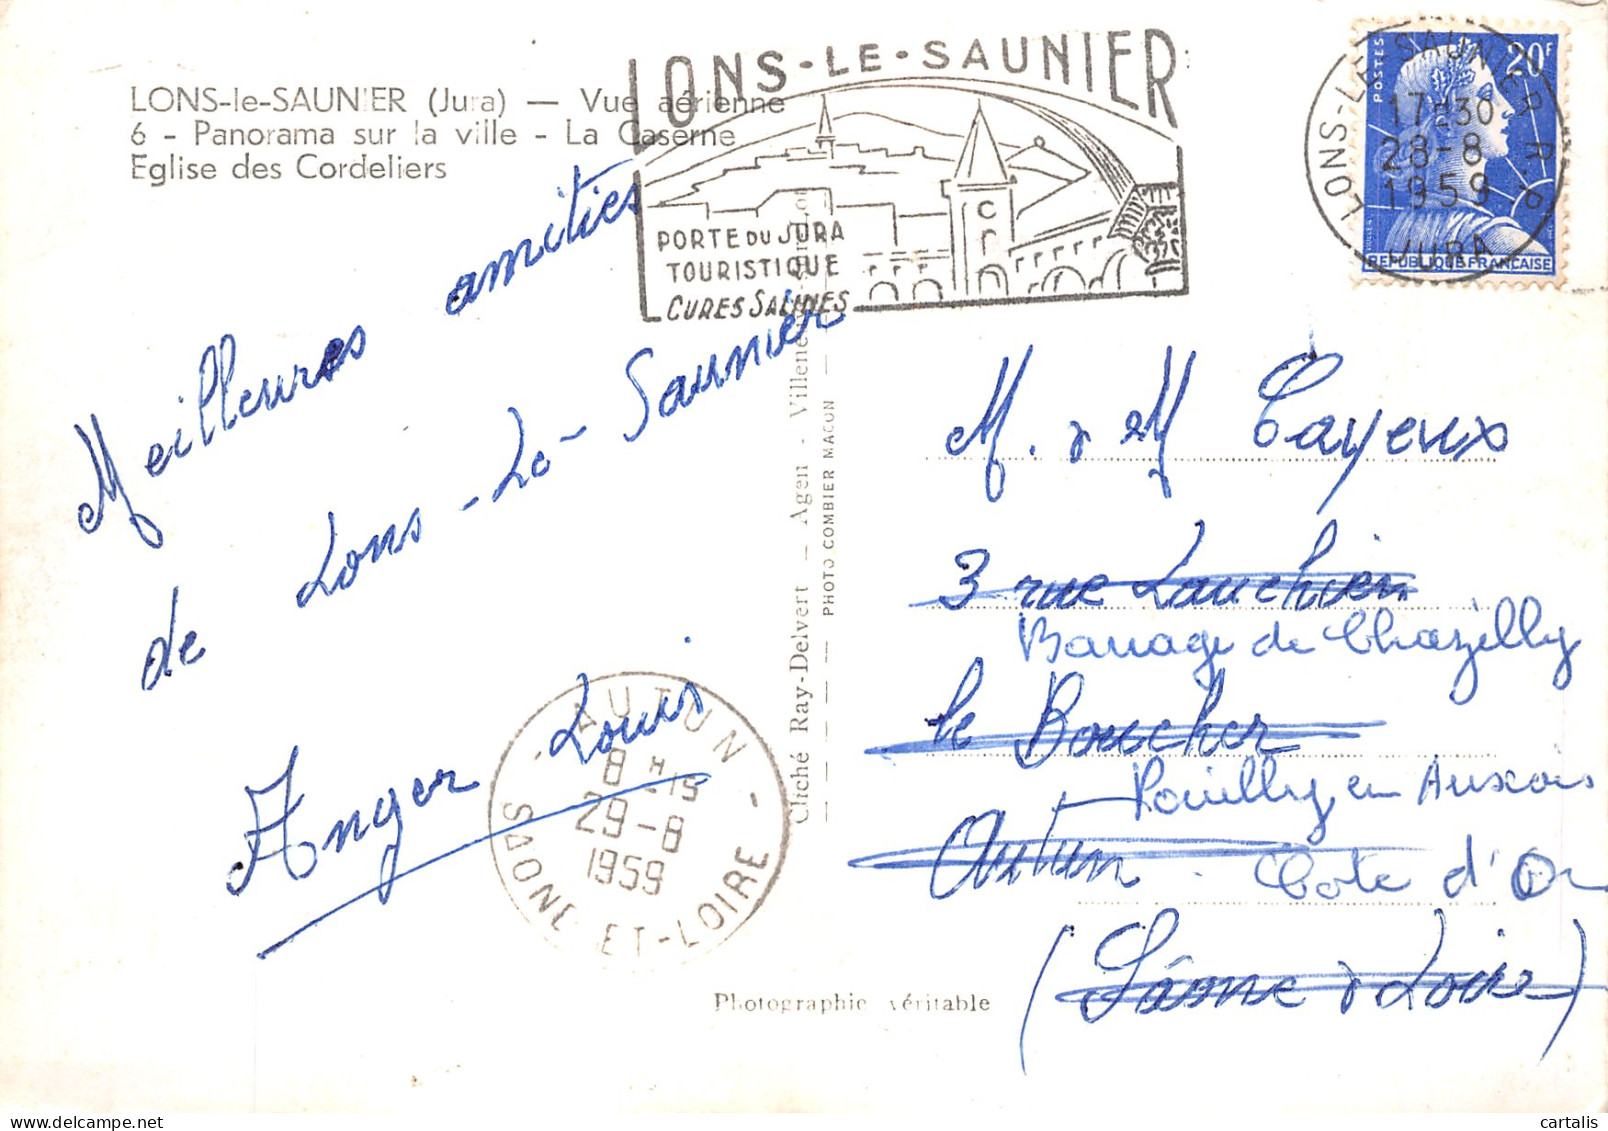 LONS-le-SAUNIER (Jura) — Vue aérienne
6 - Panorama sur la ville - La Caserne
Eglise des Cordeliers
LONS-LE-SAUNIER
PORTE DU JURA
TOURISTIQUE
CURES SALINES
LONS-LE-SAUNIER R.P.
17H30
28-8
1959
JURA
POSTES
20F
REPUBLIQUE FRANCAISE
Meilleures amitiés
de Lons-Le-Saunier
Anger Louis
AUTUN
8H15
29-8
1959
SAONE-ET-LOIRE
Cliché Ray-Delvert — Agen - Villeneuve-sur-Lot
PHOTO COMBIER MACON
Photographie véritable
M. & M Cayeux
3 rue
Barrage de Chazilly
le Boucher
Pouilly en Auxois
Autun
Cote d'Or
(Saône & Loire)
cartalis
delcampe.net